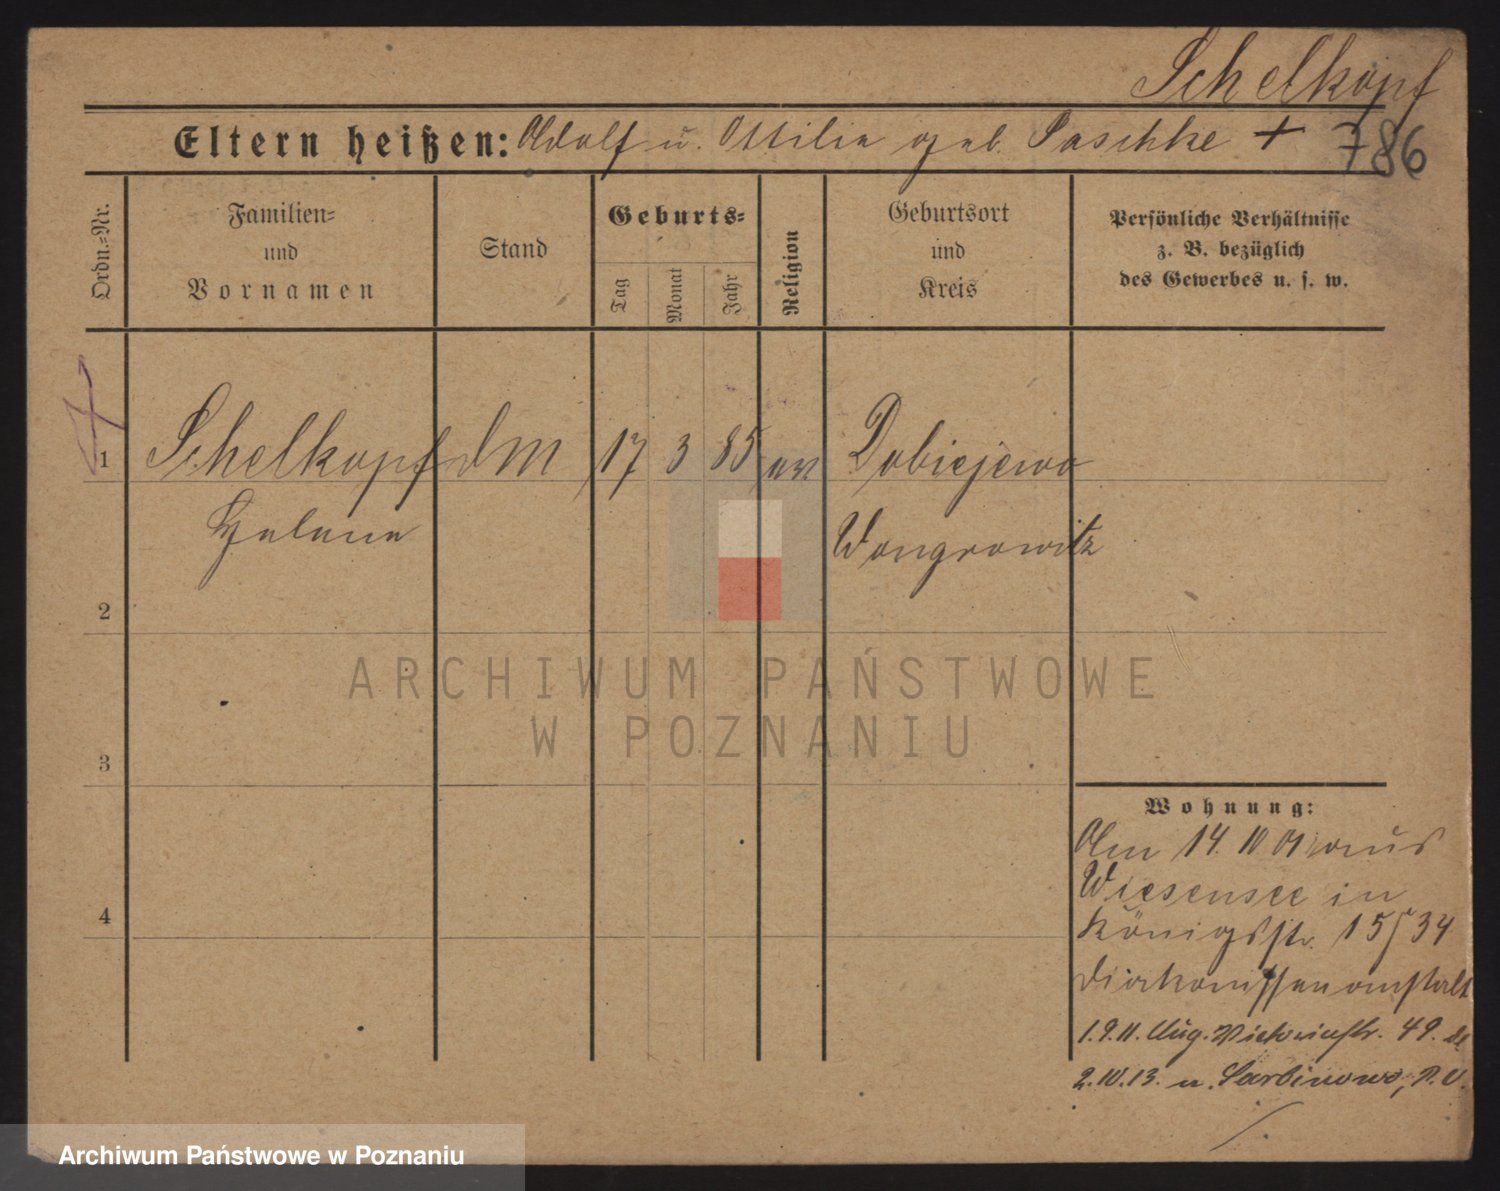 Schelkopf
Eltern heißen: Adolf u. Ottilie geb. Paschke +
786
Ordn.-Nr.
Familien-
und
Vornamen
Stand
Geburts-
Tag
Monat
Jahr
Religion
Geburtsort
und
Kreis
Persönliche Verhältnisse
z. B. bezüglich
des Gewerbes u. s. w.
1 Schelkopf dm 17 3 85 ev Dobiejewo
Helene Wongrowitz
2
3
4
ARCHIWUM PAŃSTWOWE
W POZNANIU
Wohnung:
Am 14. IV 01 aus
Wiesensee in
Königsstr. 15/34
Diakonissenanstalt
1.9.11. Aug. Victoriastr. 49.
2.10.13. n. Sarbinowo, P. O.
Archiwum Państwowe w Poznaniu